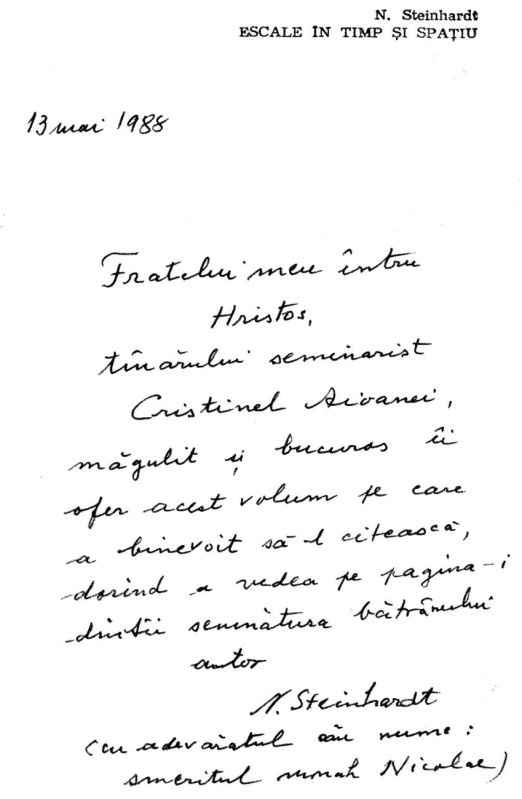 N. Steinhardt
ESCALE ÎN TIMP ȘI SPAȚIU
13 mai 1988
Fratelui meu întru
Hristos,
tînărului seminarist
Cristinel Aioanei,
măgulit și bucuros îi
ofer acest volum pe care
a binevoit să-l citească,
dorind a vedea pe pagina-i
dintîi semnătura bătrânului
autor
N. Steinhardt
(cu adevăratul său nume:
smeritul monah Nicolae)